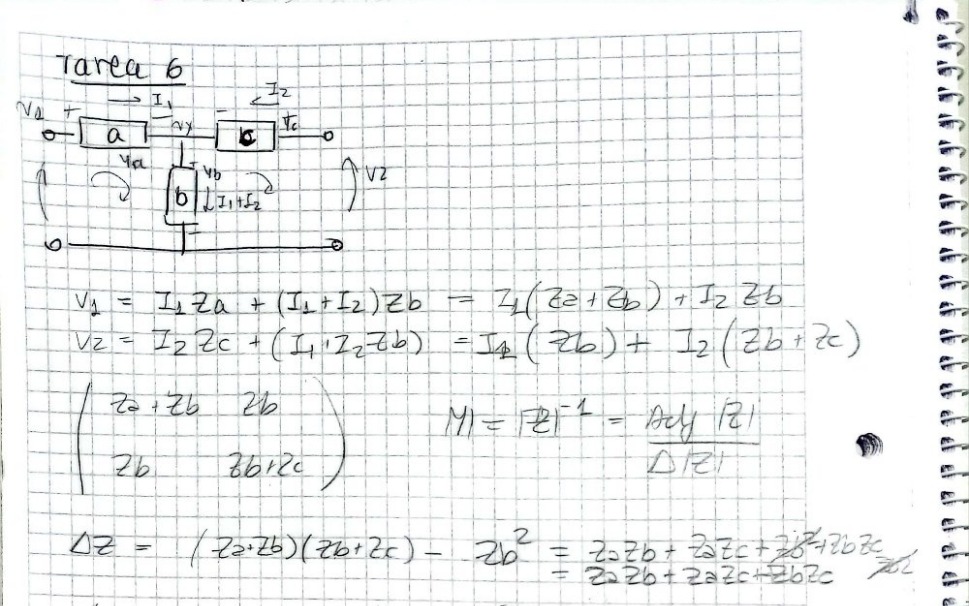 Tarea 6
I1 I2
V1 + Vy - Vc
a c
Va Vb V2
b I1+I2
V1 = I1 Za + (I1+I2)Zb = I1(Za+Zb) + I2 Zb
V2 = I2 Zc + (I1·I2 Zb) = I1(Zb) + I2(Zb+Zc)
Za+Zb Zb
|Y| = |Z|^-1 = Adj |Z| / Δ|Z|
Zb Zb+Zc
ΔZ = (Za+Zb)(Zb+Zc) - Zb^2 = ZaZb + ZaZc + Zb^2 + ZbZc - Zb2
= ZaZb + ZaZc + ZbZc